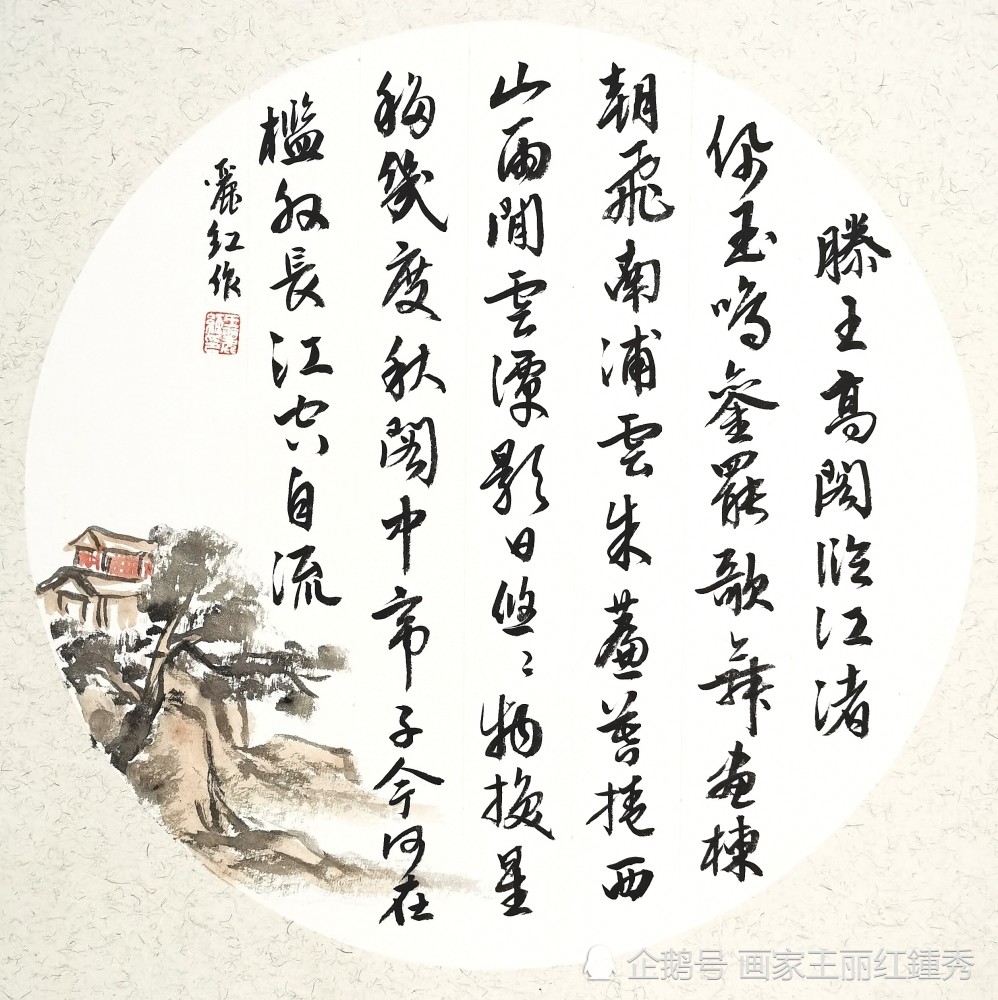 滕王高阁临江渚
佩玉鸣鸾罷歌舞画棟
朝飛南浦雲朱簾暮捲西
山雨閒雲潭影日悠々物换星
移幾度秋阁中帝子今何在
檻外長江空自流
麗红作
企鹅号 画家王丽红鍾秀